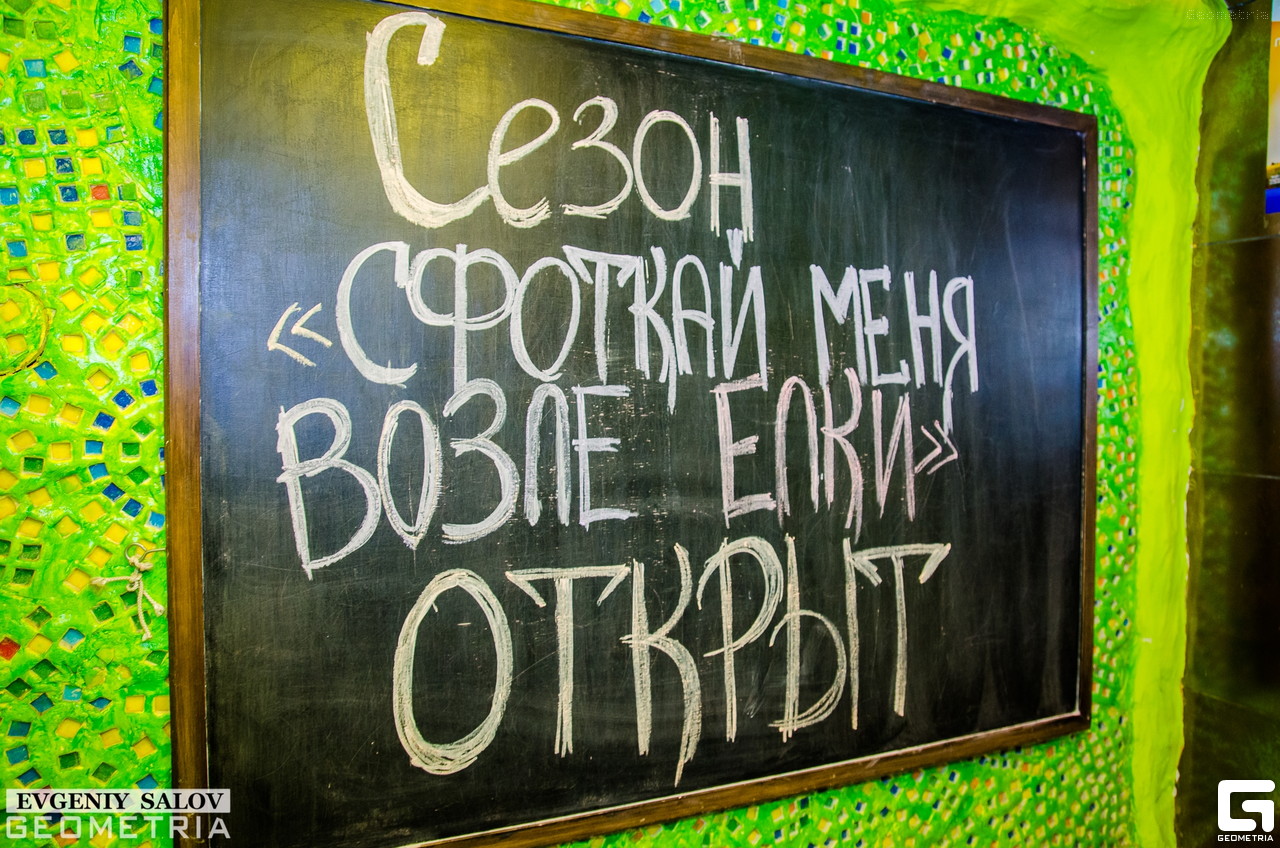 Geometria
Сезон
«СФОТКАЙ МЕНЯ
ВОЗЛЕ ЕЛКИ»
ОТКРЫТ
EVGENIY SALOV
GEOMETRIA
GEOMETRIA